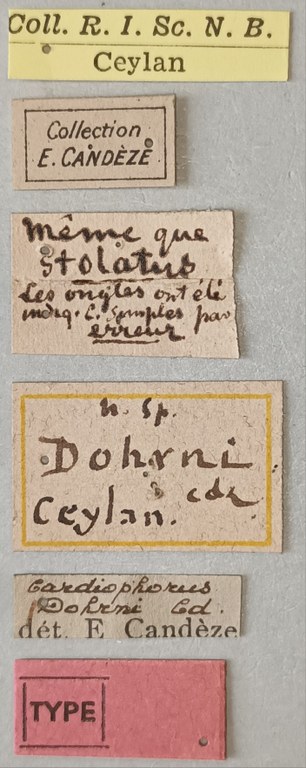 Coll. R. I. Sc. N. B.
Ceylan
Collection
E. CANDÈZE
Même que
Stolatus
Les ongles ont été
indiq. C. Simples par
erreur
n. sp.
Dohrni
cdz
Ceylan.
Cardiophorus
Dohrni Cd.
dét. E Candèze
TYPE